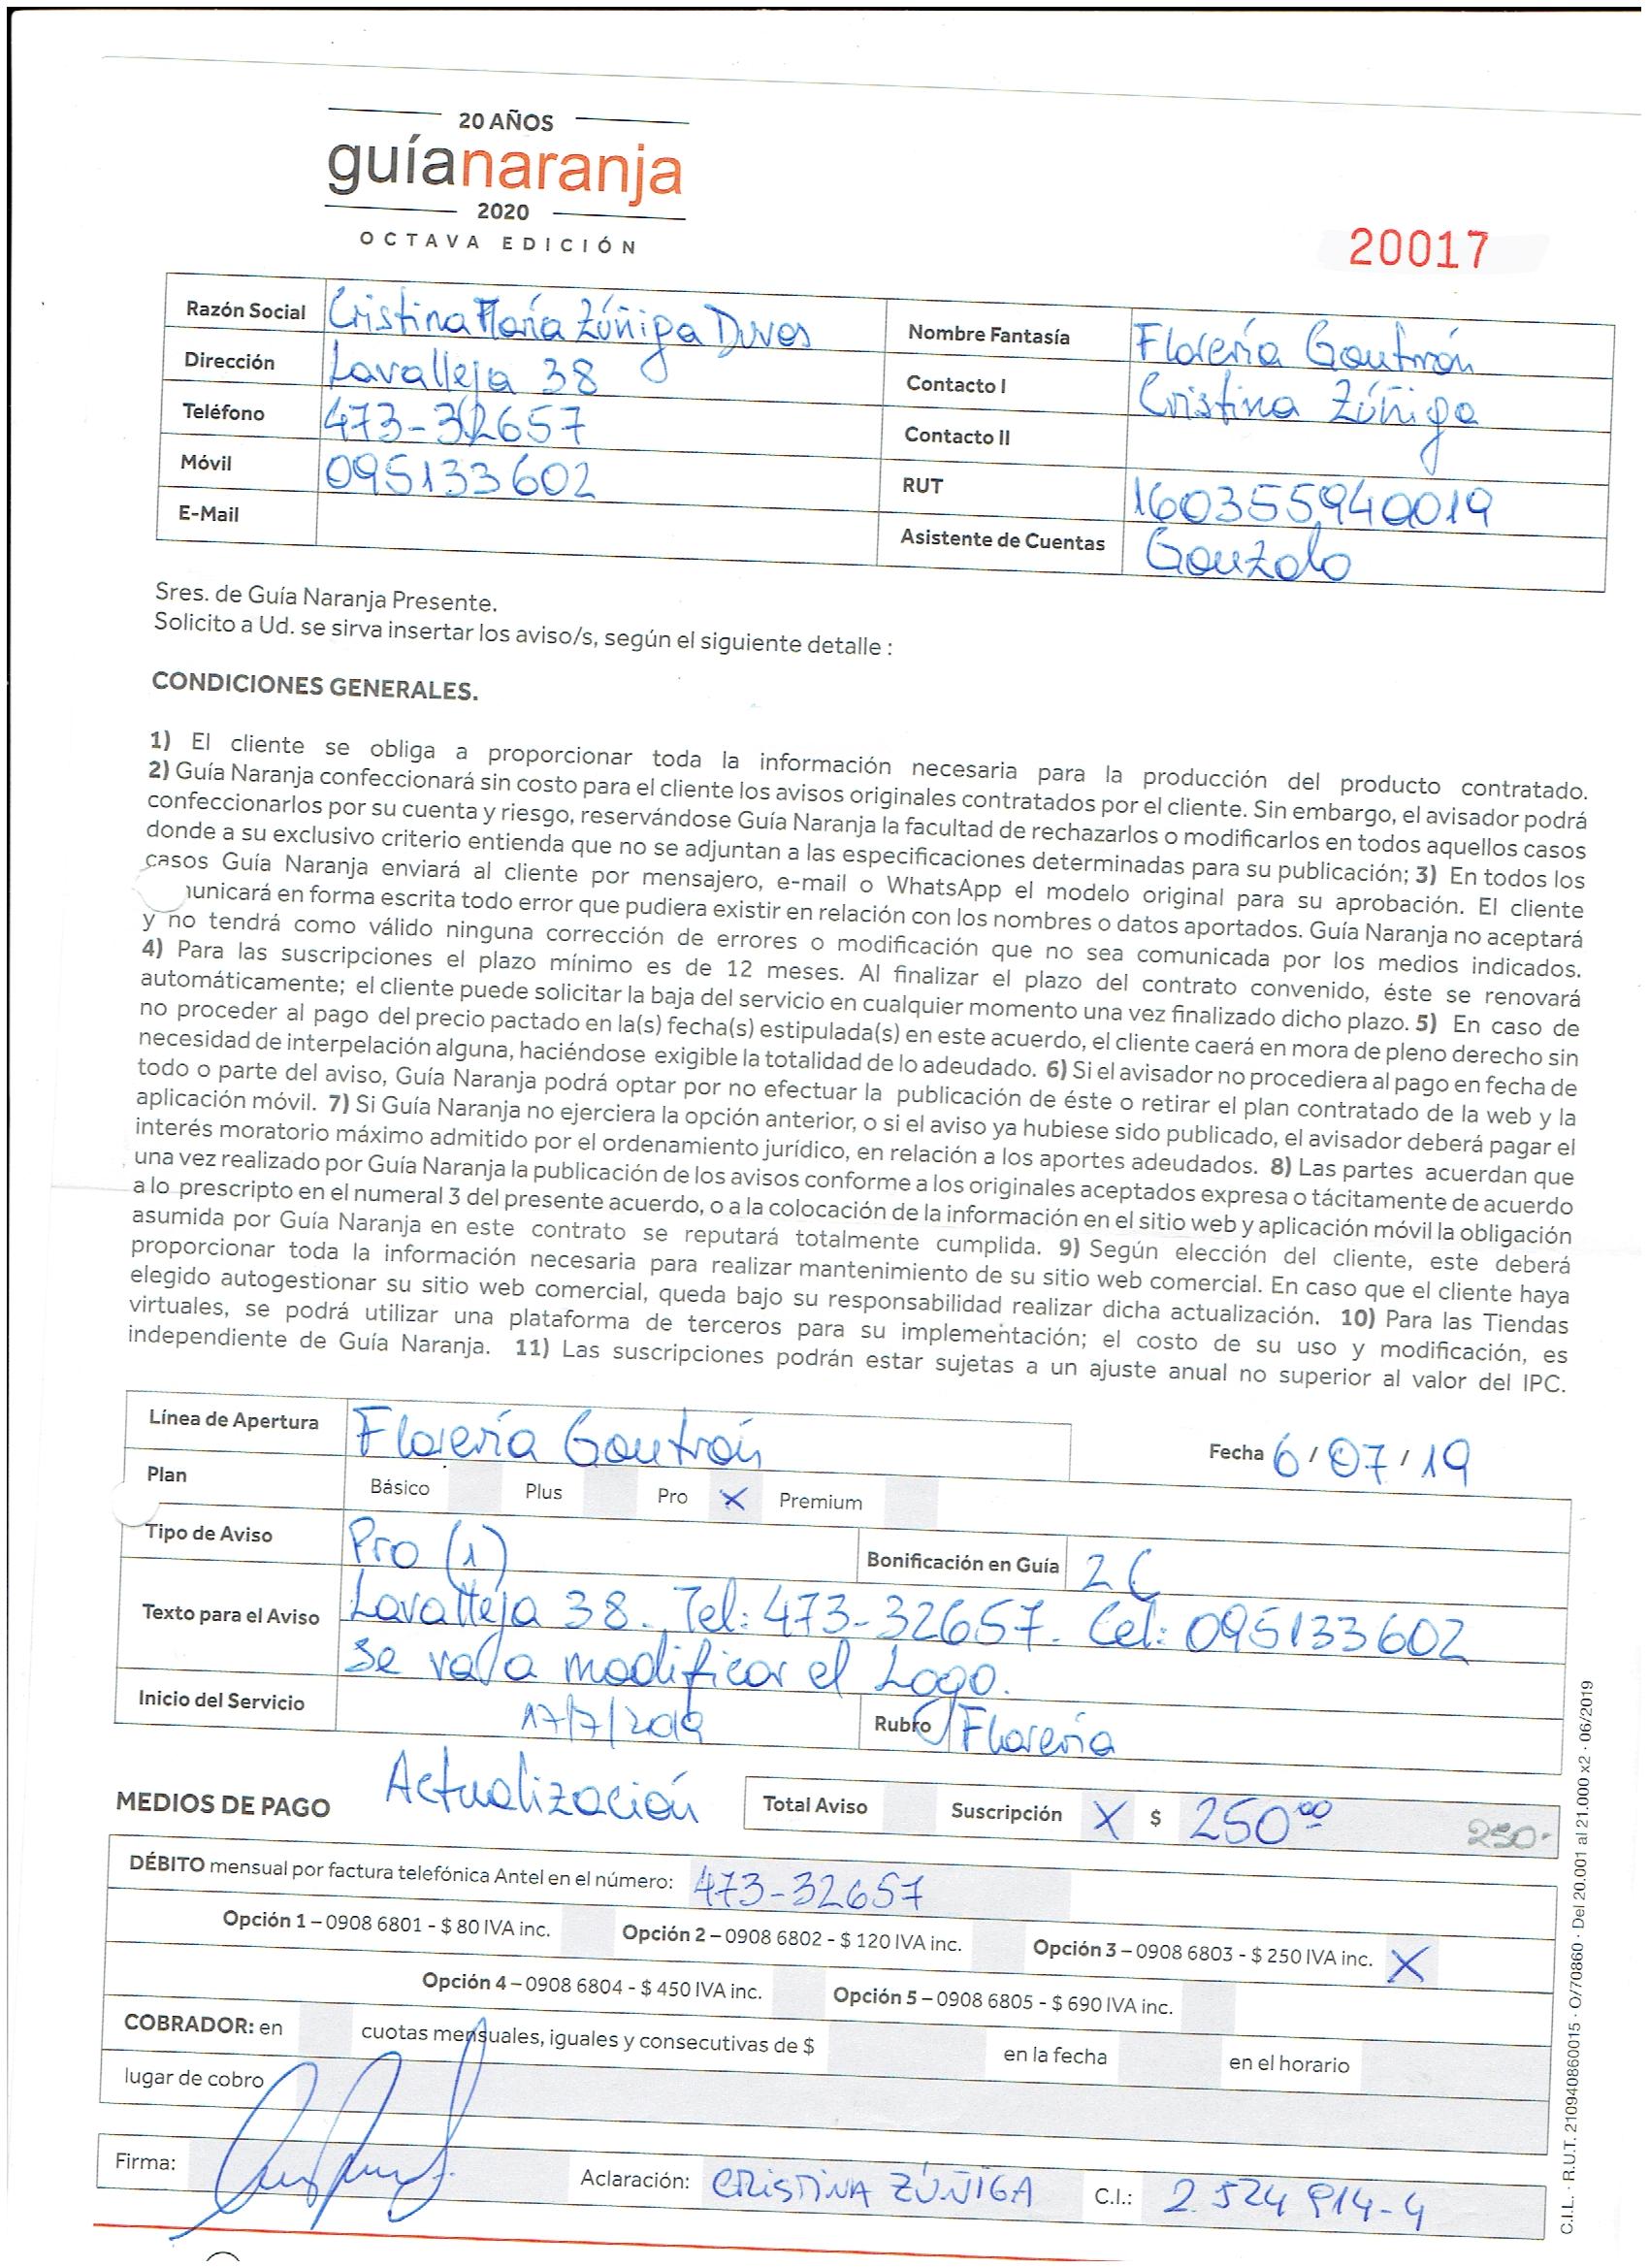 20 AÑOS
guíanaranja
2020
OCTAVA EDICIÓN
20017
Razón Social Cristina María Zúñiga Duvos Nombre Fantasía Florería Goutrón
Dirección Lavalleja 38 Contacto I Cristina Zúñiga
Teléfono 473-32657 Contacto II
Móvil 095133602 RUT 160355940019
E-Mail Asistente de Cuentas Gonzalo
Sres. de Guía Naranja Presente.
Solicito a Ud. se sirva insertar los aviso/s, según el siguiente detalle :
CONDICIONES GENERALES.
1) El cliente se obliga a proporcionar toda la información necesaria para la producción del producto contratado.
2) Guía Naranja confeccionará sin costo para el cliente los avisos originales contratados por el cliente. Sin embargo, el avisador podrá
confeccionarlos por su cuenta y riesgo, reservándose Guía Naranja la facultad de rechazarlos o modificarlos en todos aquellos casos
donde a su exclusivo criterio entienda que no se adjuntan a las especificaciones determinadas para su publicación; 3) En todos los
casos Guía Naranja enviará al cliente por mensajero, e-mail o WhatsApp el modelo original para su aprobación. El cliente
unicará en forma escrita todo error que pudiera existir en relación con los nombres o datos aportados. Guía Naranja no aceptará
y no tendrá como válido ninguna corrección de errores o modificación que no sea comunicada por los medios indicados.
4) Para las suscripciones el plazo mínimo es de 12 meses. Al finalizar el plazo del contrato convenido, éste se renovará
automáticamente; el cliente puede solicitar la baja del servicio en cualquier momento una vez finalizado dicho plazo. 5) En caso de
no proceder al pago del precio pactado en la(s) fecha(s) estipulada(s) en este acuerdo, el cliente caerá en mora de pleno derecho sin
necesidad de interpelación alguna, haciéndose exigible la totalidad de lo adeudado. 6) Si el avisador no procediera al pago en fecha de
todo o parte del aviso, Guía Naranja podrá optar por no efectuar la publicación de éste o retirar el plan contratado de la web y la
aplicación móvil. 7) Si Guía Naranja no ejerciera la opción anterior, o si el aviso ya hubiese sido publicado, el avisador deberá pagar el
interés moratorio máximo admitido por el ordenamiento jurídico, en relación a los aportes adeudados. 8) Las partes acuerdan que
una vez realizado por Guía Naranja la publicación de los avisos conforme a los originales aceptados expresa o tácitamente de acuerdo
a lo prescripto en el numeral 3 del presente acuerdo, o a la colocación de la información en el sitio web y aplicación móvil la obligación
asumida por Guía Naranja en este contrato se reputará totalmente cumplida. 9) Según elección del cliente, este deberá
proporcionar toda la información necesaria para realizar mantenimiento de su sitio web comercial. En caso que el cliente haya
elegido autogestionar su sitio web comercial, queda bajo su responsabilidad realizar dicha actualización. 10) Para las Tiendas
virtuales, se podrá utilizar una plataforma de terceros para su implementación; el costo de su uso y modificación, es
independiente de Guía Naranja. 11) Las suscripciones podrán estar sujetas a un ajuste anual no superior al valor del IPC.
Línea de Apertura Florería Goutrón Fecha 6 / 07 / 19
Plan Básico Plus Pro X Premium
Tipo de Aviso Pro (1) Bonificación en Guía 2C
Texto para el Aviso Lavalleja 38. Tel: 473-32657. Cel: 095133602
se va a modificar el Logo.
Inicio del Servicio 17/7/2019 Rubro Florería
MEDIOS DE PAGO Actualización Total Aviso Suscripción X $ 250⁰⁰ 250.
DÉBITO mensual por factura telefónica Antel en el número: 473-32657
Opción 1 – 0908 6801 - $ 80 IVA inc. Opción 2 – 0908 6802 - $ 120 IVA inc. Opción 3 – 0908 6803 - $ 250 IVA inc. X
Opción 4 – 0908 6804 - $ 450 IVA inc. Opción 5 – 0908 6805 - $ 690 IVA inc.
COBRADOR: en cuotas mensuales, iguales y consecutivas de $ en la fecha en el horario
lugar de cobro
Firma: Aclaración: CRISTINA ZÚÑIGA C.I.: 2.524 914-4
C.I.L. · R.U.T. 210940860015 · O/70860 · Del 20.001 al 21.000 x2 · 06/2019